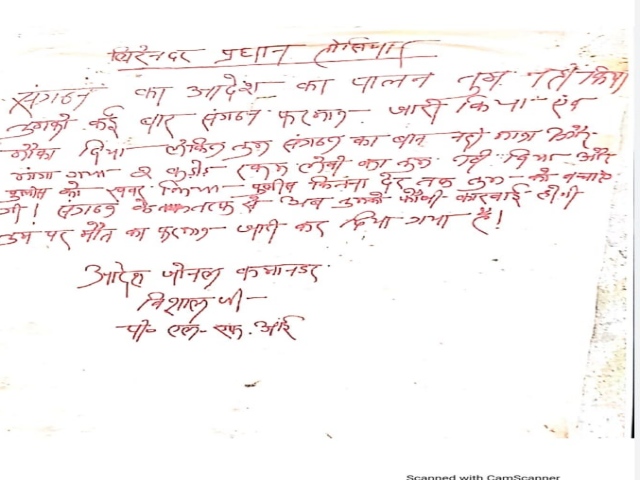 बिरेनदर प्रधान तोसिया
संगठन का आदेश का पालन तुम नही किया
तुमको कई बार संगठन फरमान जारी किया एंव
मौका दिया लेकिन तुम संगठन का बात नही माना और
मांगा गया 2 करोड़ रकम लेवी का तुम नही दिया और
पुलिस को खबर किया पुलिस कितना देर तक तुम को बचाए
गी! संगठन के तरफ से अब तुमको फौजी कारवाई होगी
तुम पर मौत का फरमान जारी कर दिया गया है!
आदेश जोनल कमानडर
विशाल जी-
पी॰ एल- एफ. आई
Scanned with CamScanner